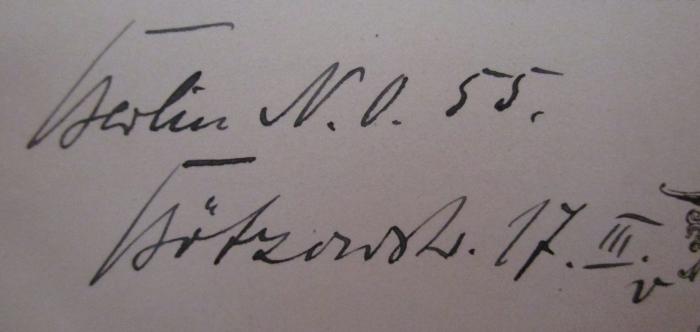 Berlin N. O. 55.
Bötzowstr. 17. III. v